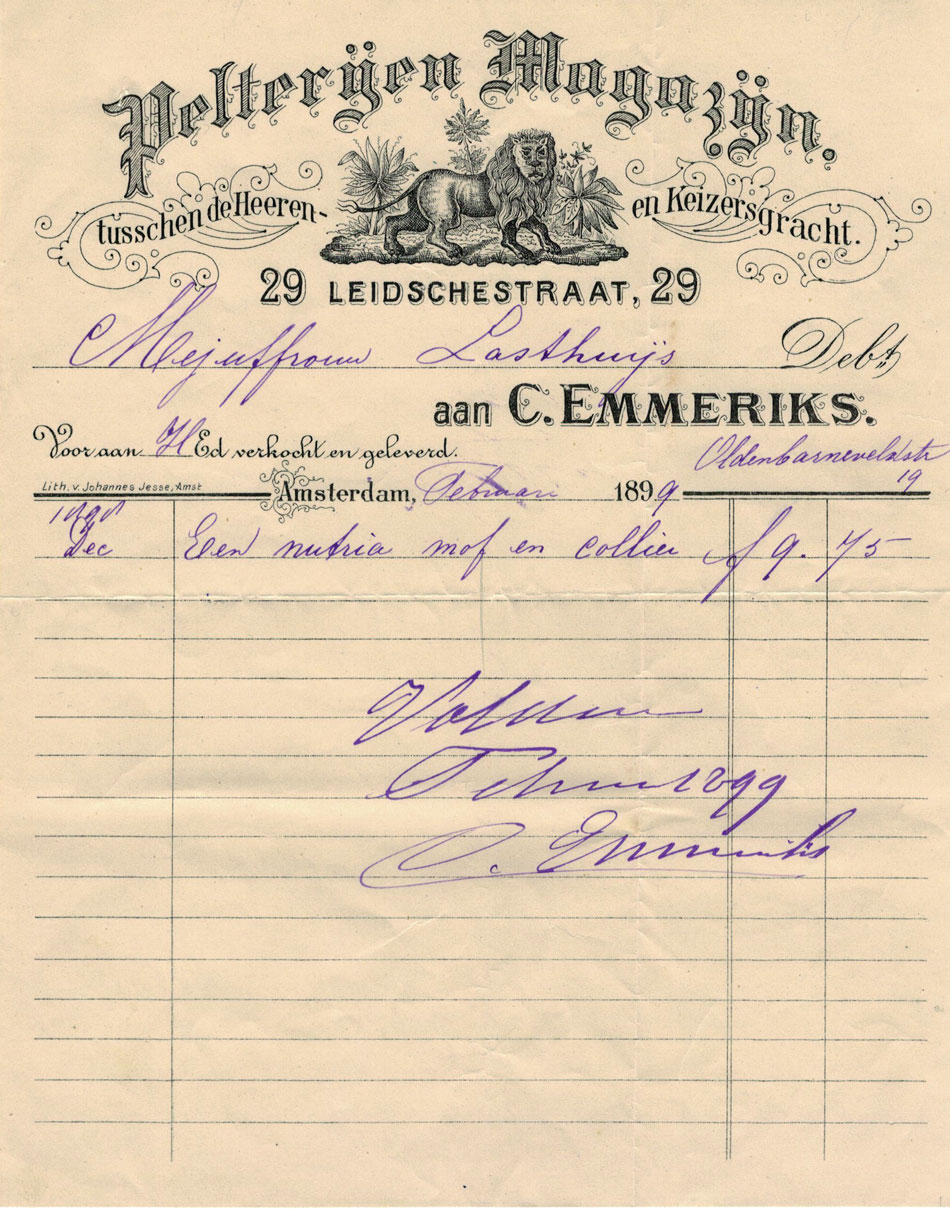 Pelterijen Magazijn.
tusschen de Heeren- en Keizersgracht.
29 LEIDSCHESTRAAT, 29
Mejuffrouw Lasthuijs Debt.
aan C. EMMERIKS.
Voor aan H Ed verkocht en geleverd.
Oldenbarneveldstr
19
Lith. v. Johannes Jesse, Amst
Amsterdam, Februari 1899
1898
Dec Een nutria mof en collier f 9. 75
Voldaan
Febru 1899
C. Emmeriks